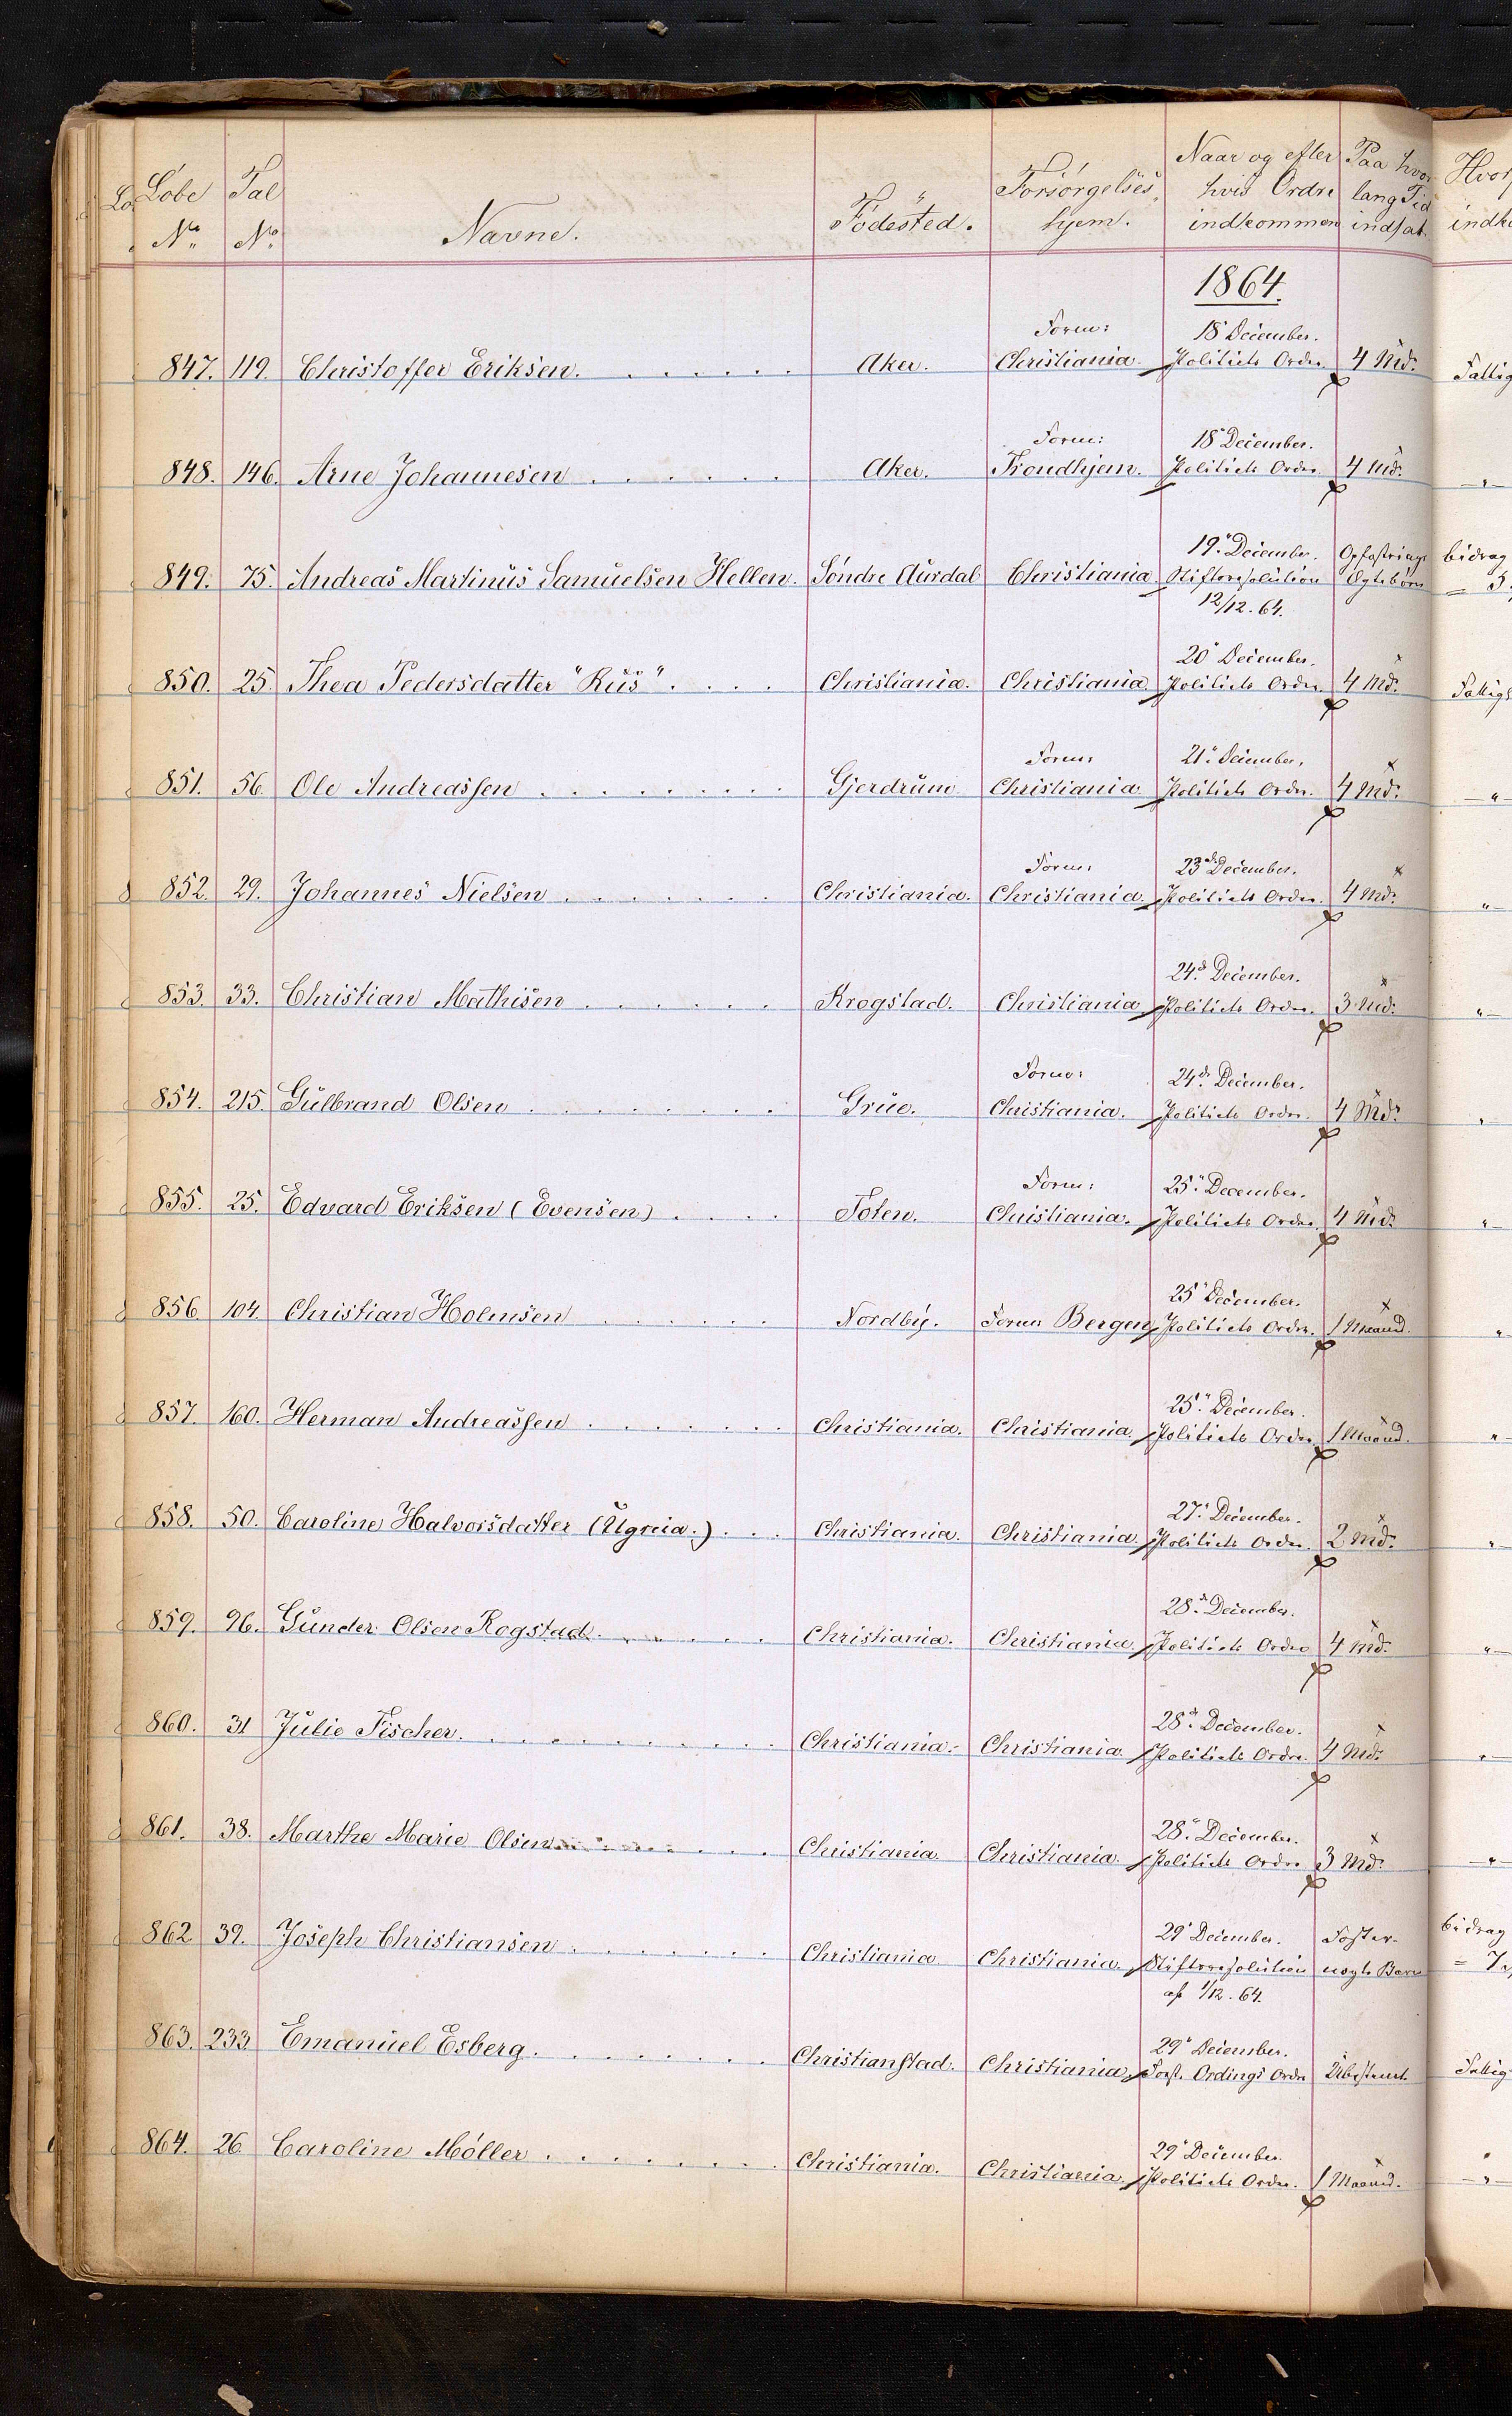 Løbe No. | Tal No. | Navne. | Födested. | Forsørgelses hjem. | Naar og efter hvis Ordre indkommen | Paa hvor lang Tid indsat.
1864.
847. | 119. | Christoffer Eriksen. | Aker. | Form: Christiania. | 18 December. Politiets Ordre. | 4 Md.
848. | 146. | Arne Johannesen | Aker. | Form: Trondhjem. | 18 December. Politiets Ordre. | 4 Md.
849. | 75. | Andreas Martinus Samuelsen Hellen. | Søndre Aurdal | Christiania | 19. December. Stiftsresolution 12/12. 64. | Opfostrings bidrag Ægtebørn
850. | 25. | Thea Pedersdatter "Rus" | Christiania. | Christiania | 20 December. Politiets Ordre. | 4 Md.
851. | 56. | Ole Andreassen | Gjerdrum | Form: Christiania. | 21. December. Politiets Ordre. | 4 Md.
852. | 29. | Johannes Nielsen | Christiania. | Form: Christiania. | 23 December. Politiets Ordre. | 4 Md.
853. | 33. | Christian Mathisen | Krogstad. | Christiania | 24. December. Politiets Ordre. | 3 Md.
854. | 215. | Gulbrand Olsen | Grue. | Form: Christiania. | 24. December. Politiets Ordre. | 4 Md.
855. | 25. | Edvard Eriksen (Evensen) | Toten. | Form: Christiania. | 25. December. Politiets Ordre. | 4 Md.
856. | 104. | Christian Holmsen | Nordby. | Form: Bergen | 25 December. Politiets Ordre. | 1 Maaned.
857. | 160. | Herman Andreassen | Christiania. | Christiania. | 25. December. Politiets Ordre. | 1 Maaned.
858. | 50. | Caroline Halvorsdatter | Christiania. | Christiania. | 27. December. Politiets Ordre. | 2 Md.
859. | 96. | Gunder Olsen Rogstad. | Christiania. | Christiania. | 28. December. Politiets Ordre | 4 Md.
860. | 31 | Julie Fischer. | Christiania. | Christiania. | 28. December. Politiets Ordre. | 4 Md.
861. | 38. | Marthe Marie Olsen | Christiania. | Christiania. | 28. December. Politiets Ordre | 3 Md.
862 | 39. | Joseph Christiansen | Christiania. | Christiania. | 29 December. Stiftsresolution af 1/12. 64. | Foster- bidrag uægte Barn
863. | 233 | Emanuel Esberg. | Christianstad. | Christiania. | 29 December. Ordings Ordre | Ubestemt
864. | 26. | Caroline Møller | Christiania. | Christiania. | 29 December. Politiets Ordre. | 1 Maaned.